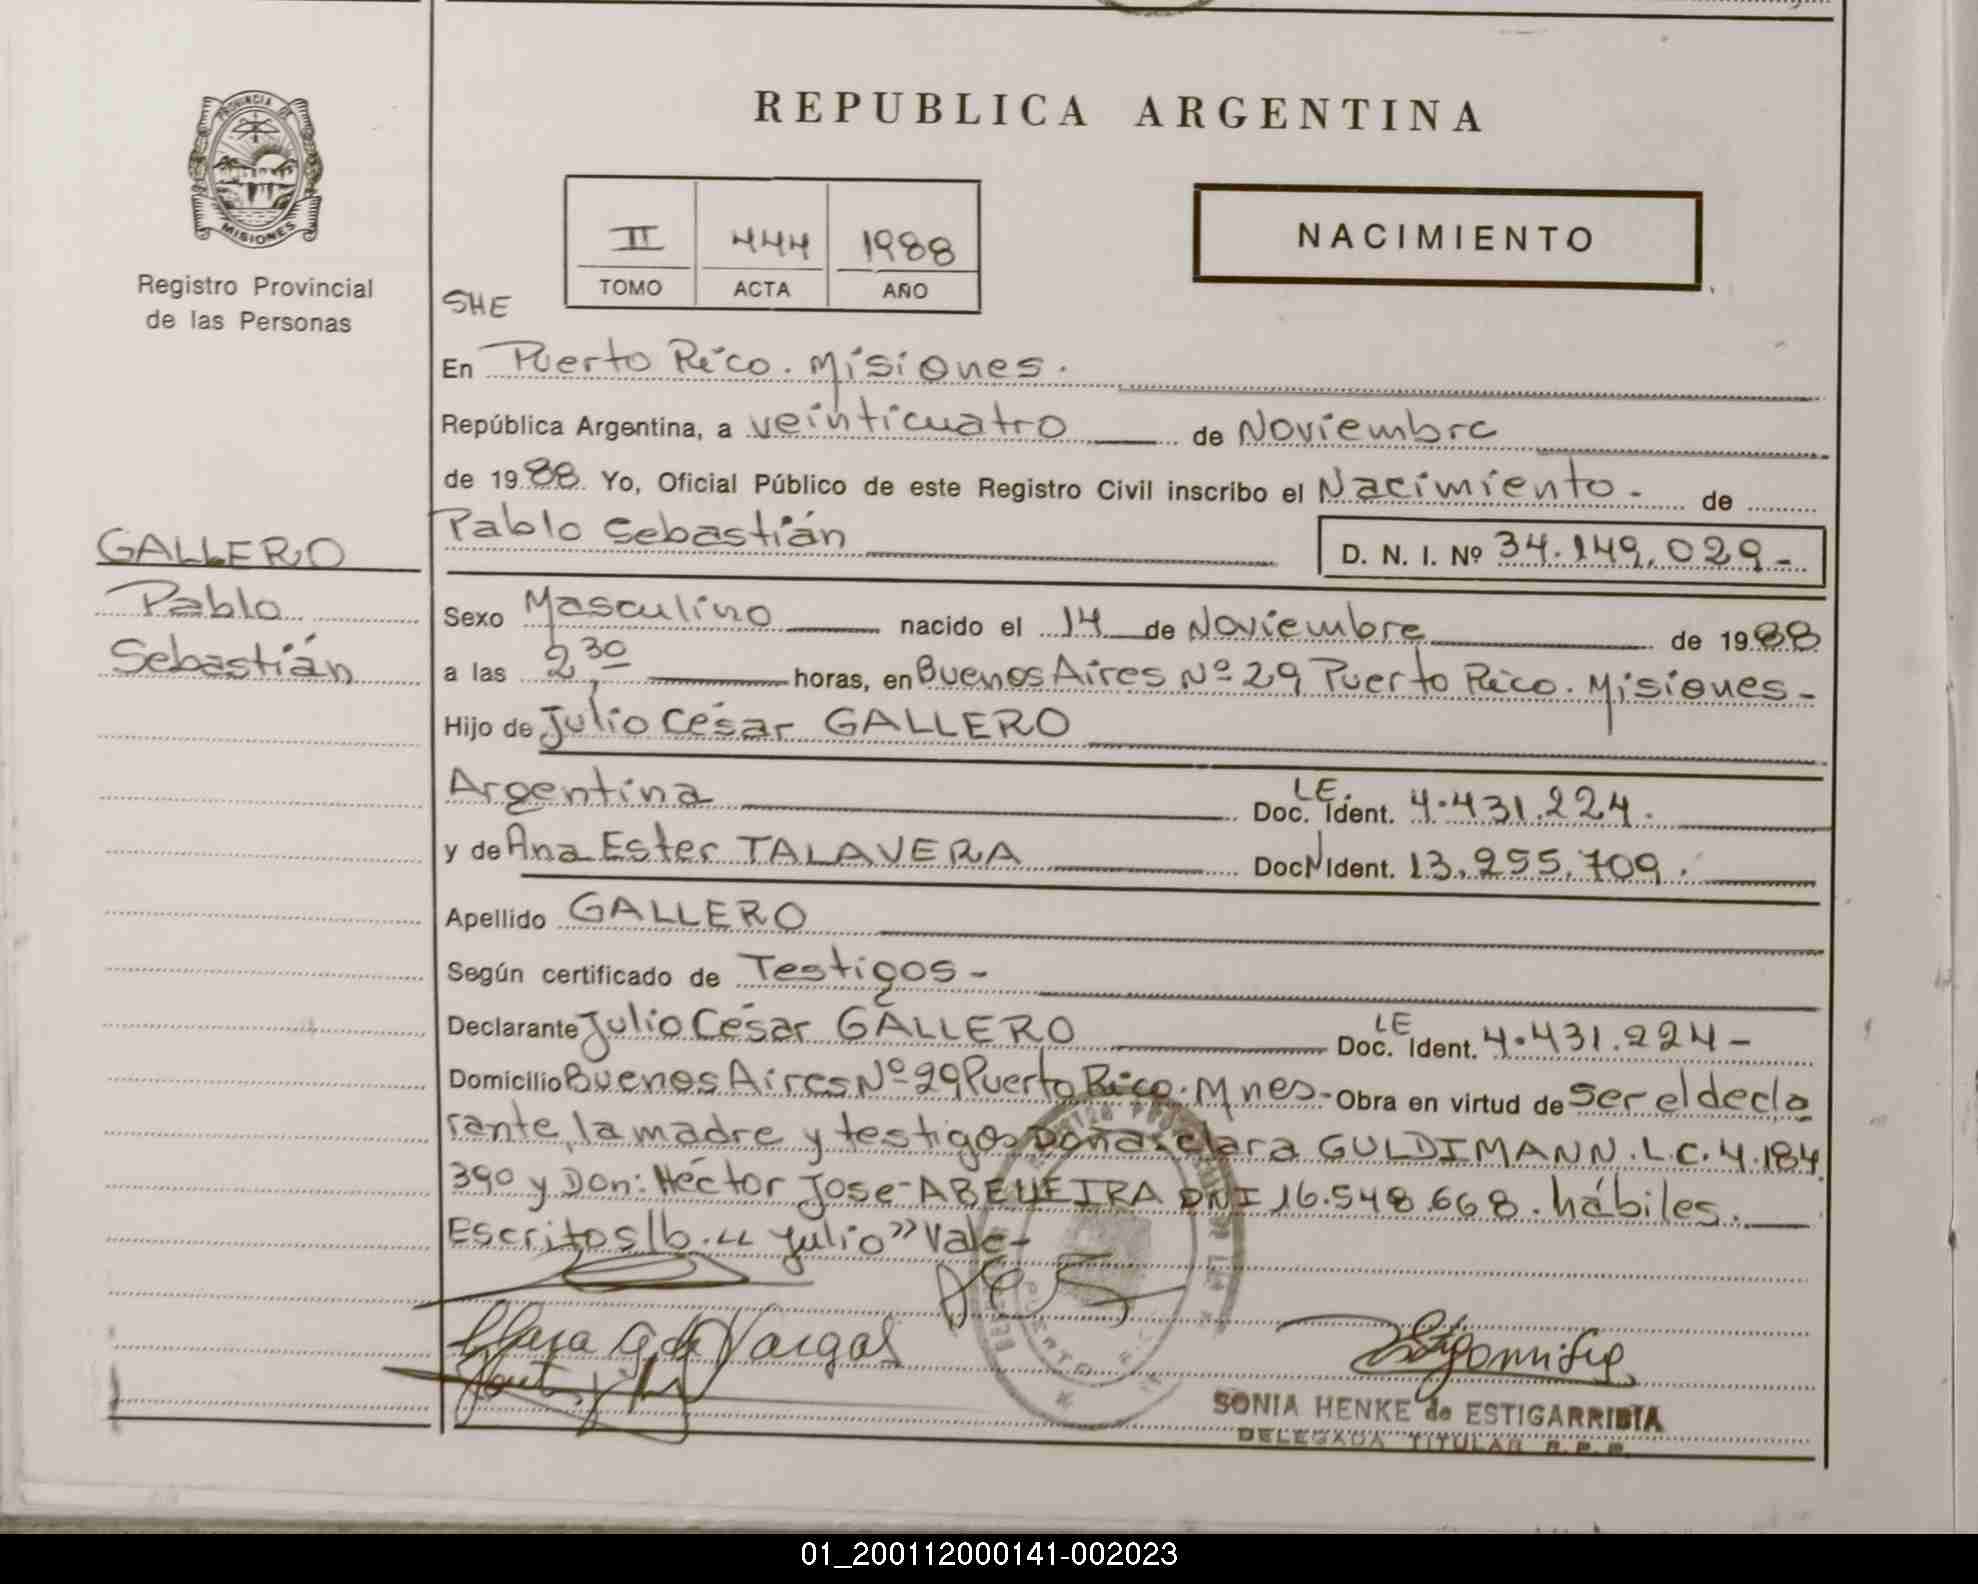 REPUBLICA ARGENTINA
PROVINCIA DE
MISIONES
Registro Provincial
de las Personas
II 444 1988
TOMO ACTA AÑO
NACIMIENTO
SHE
En Puerto Rico. Misiones.
República Argentina, a veinticuatro de Noviembre
de 1988 Yo, Oficial Público de este Registro Civil inscribo el Nacimiento. de
GALLERO
Pablo
Sebastián
Pablo Sebastián D. N. I. Nº 34.149.029-
Sexo Masculino nacido el 14 de Noviembre de 1988
a las 2,30 horas, en Buenos Aires Nº 29 Puerto Rico. Misiones-
Hijo de Julio César GALLERO
Argentina Doc. Ident. LE. 4.431.224.
y de Ana Ester TALAVERA Doc Ident. 13.255.709.
Apellido GALLERO
Según certificado de Testigos-
Declarante Julio César GALLERO Doc. Ident. LE 4.431.224-
Domicilio Buenos Aires Nº 29 Puerto Rico. Mnes- Obra en virtud de ser el decla
rante, la madre y testigos Doña: Clara GULDIMANN. L.C. 4.184.
390 y Don: Héctor Jose ABELEIRA DNI 16.548.668. hábiles.
Escrito s/b. "Julio" Vale-
Clara G de Vargas
SONIA HENKE de ESTIGARRIBIA
DELEGADA TITULAR R.P.P.
01_200112000141-002023